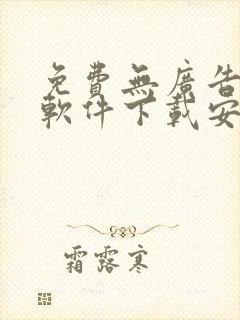 免費無廣告
軟件下載安
霜露寒